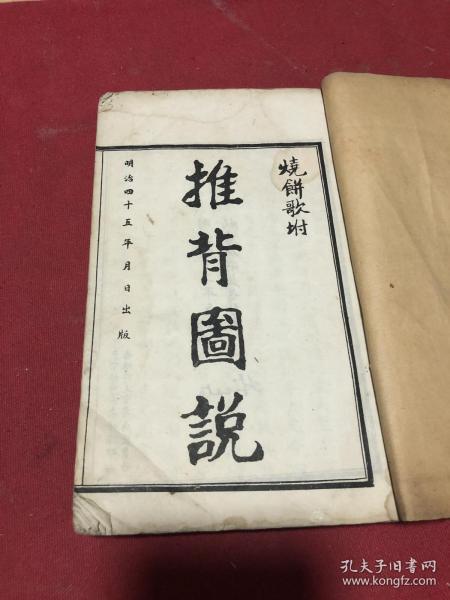 燒餅歌坿
推背圖説
明治四十五年月日出版
孔夫子旧书网
www.kongfz.com